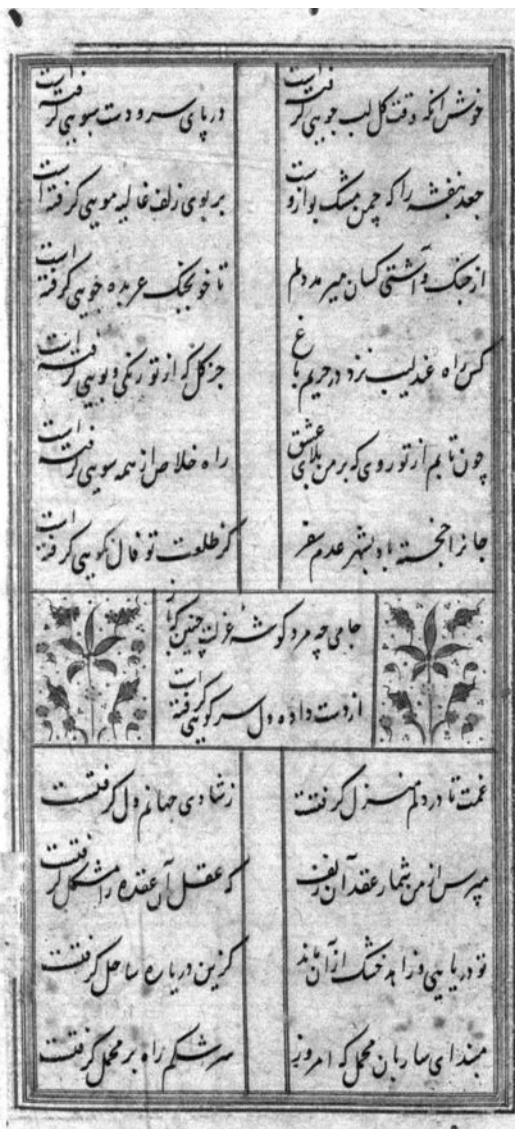 خوش آنکه وقت گل لب جویی گرفته است
در پای سرو دست سبویی گرفته است
جعد بنفشه را که چمن مشک بو ازوست
بر بوی زلف غالیه مویی گرفته است
از جنک و آشتی کسان میرمد دلم
تا خو بجنک عربده خویی گرفته است
کس راه عندلیب نزد در حریم باغ
جز گل که از تو رنگی و بویی گرفته است
چون تابم از تو روی که بر من بلای عشق
راه خلاص از همه سویی گرفته است
جانرا خجسته باد بشهر عدم سفر
کز طلعت تو فال نکویی گرفته است
جامی چه مرد گوشه عزلت چنین که یار
از دست داده دل سر کویی گرفته است
غمت تا در دلم منزل گرفتست
ز شادی جهانم دل گرفتست
مپرس از من شمار عقد آن زلف
که عقل آن عقده را مشکل گرفتست
تو دریایی و زاهد خشک از آن ماند
کزین دریا ره ساحل گرفتست
مبند ای ساربان محمل که امروز
سرشکم راه بر محمل گرفتست